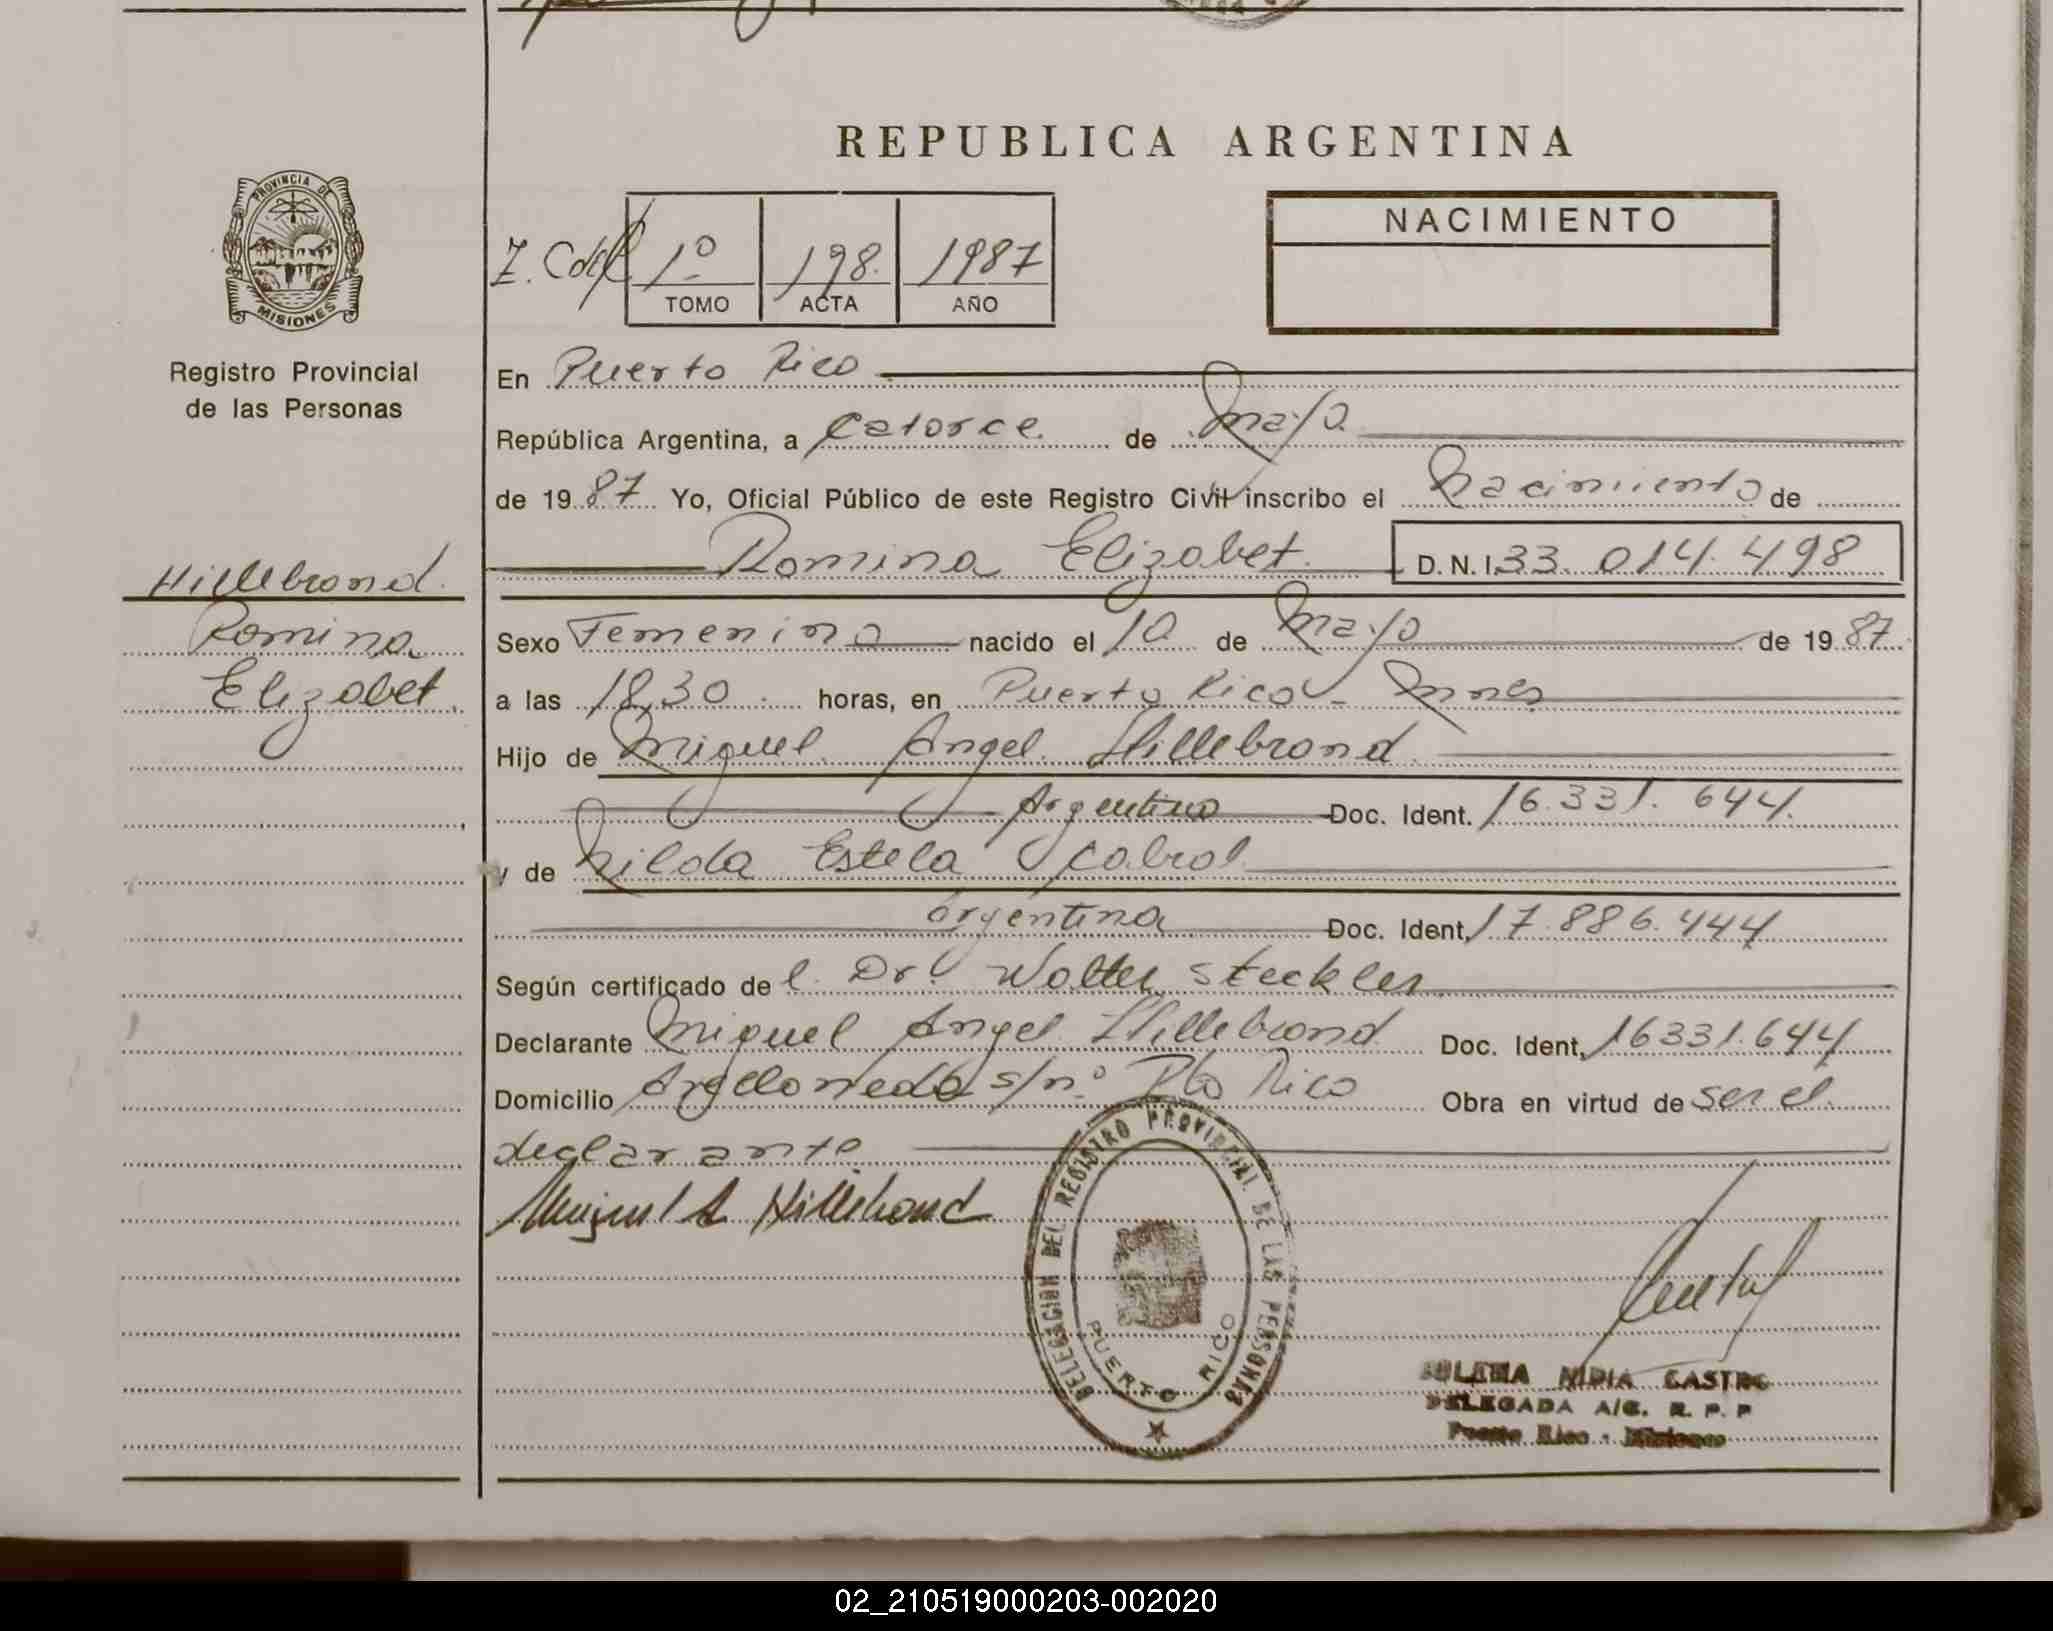 REPUBLICA ARGENTINA
PROVINCIA DE
MISIONES
Registro Provincial
de las Personas
1º 198. 1987
TOMO ACTA AÑO
NACIMIENTO
En Puerto Rico
República Argentina, a catorce de Mayo
de 1987 Yo, Oficial Público de este Registro Civil inscribo el Nacimiento de
Romina Elizabet D.N.I. 33.014.498
Hillebrand
Romina
Elizabet.
Sexo Femenino nacido el 10 de Mayo de 1987.
a las 18,30 horas, en Puerto Rico - Mnes
Hijo de Miguel Angel Hillebrand
Argentino Doc. Ident. 16.331.644.
y de Nilda Estela Cabral
argentina Doc. Ident. 17.886.444
Según certificado del Dr. Walter Steckler
Declarante Miguel Angel Hillebrand Doc. Ident. 16331.644
Domicilio s/nº Pto Rico Obra en virtud de ser el
declarante
Miguel A Hillebrand
DELEGACION DEL REGISTRO PROVINCIAL DE LAS PERSONAS
PUERTO RICO
NIDIA CASTRO
DELEGADA A/C. R. P. P
Puerto Rico - Misiones
02_210519000203-002020